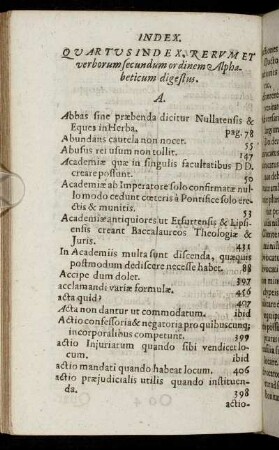 INDEX.
QUARTUS INDEX, RERUM ET
verborum secundum ordinem Alpha-
beticum digestus.
A.
Abbas sine præbenda dicitur Nullatensis &
Eques in Herba. pag. 78
Abundans cautela non nocet. 55
Abusus rei usum non tollit. 147
Academiæ quæ in singulis facultatibus DD.
creare possunt. 50
Academiæ ab Imperatore solo confirmatæ nul-
lo modo cedunt cæteris à Pontifice solo ere-
ctis & munitis. 53
Academiæ antiquiores ut Erfurtensis & Lipsi-
ensis creant Baccalaureos Theologiæ &
Juris. 431
In Academiis multa sunt discenda, quæquis
postmodum dediscere necesse habet. 88
Accipe dum dolet. 397
acclamandi variæ formulæ. 456
acta quid? 407
Acta non dantur ut commodatum. ibid
Actio confessoria & negatoria pro quibuscunq;
incorporalibus competunt. 399
actio Injuriarum quando sibi vendicet lo-
cum. ibid
actio mandati quando habeat locum. 406
actio præjudicialis utilis quando instituen-
da. 398
actio-